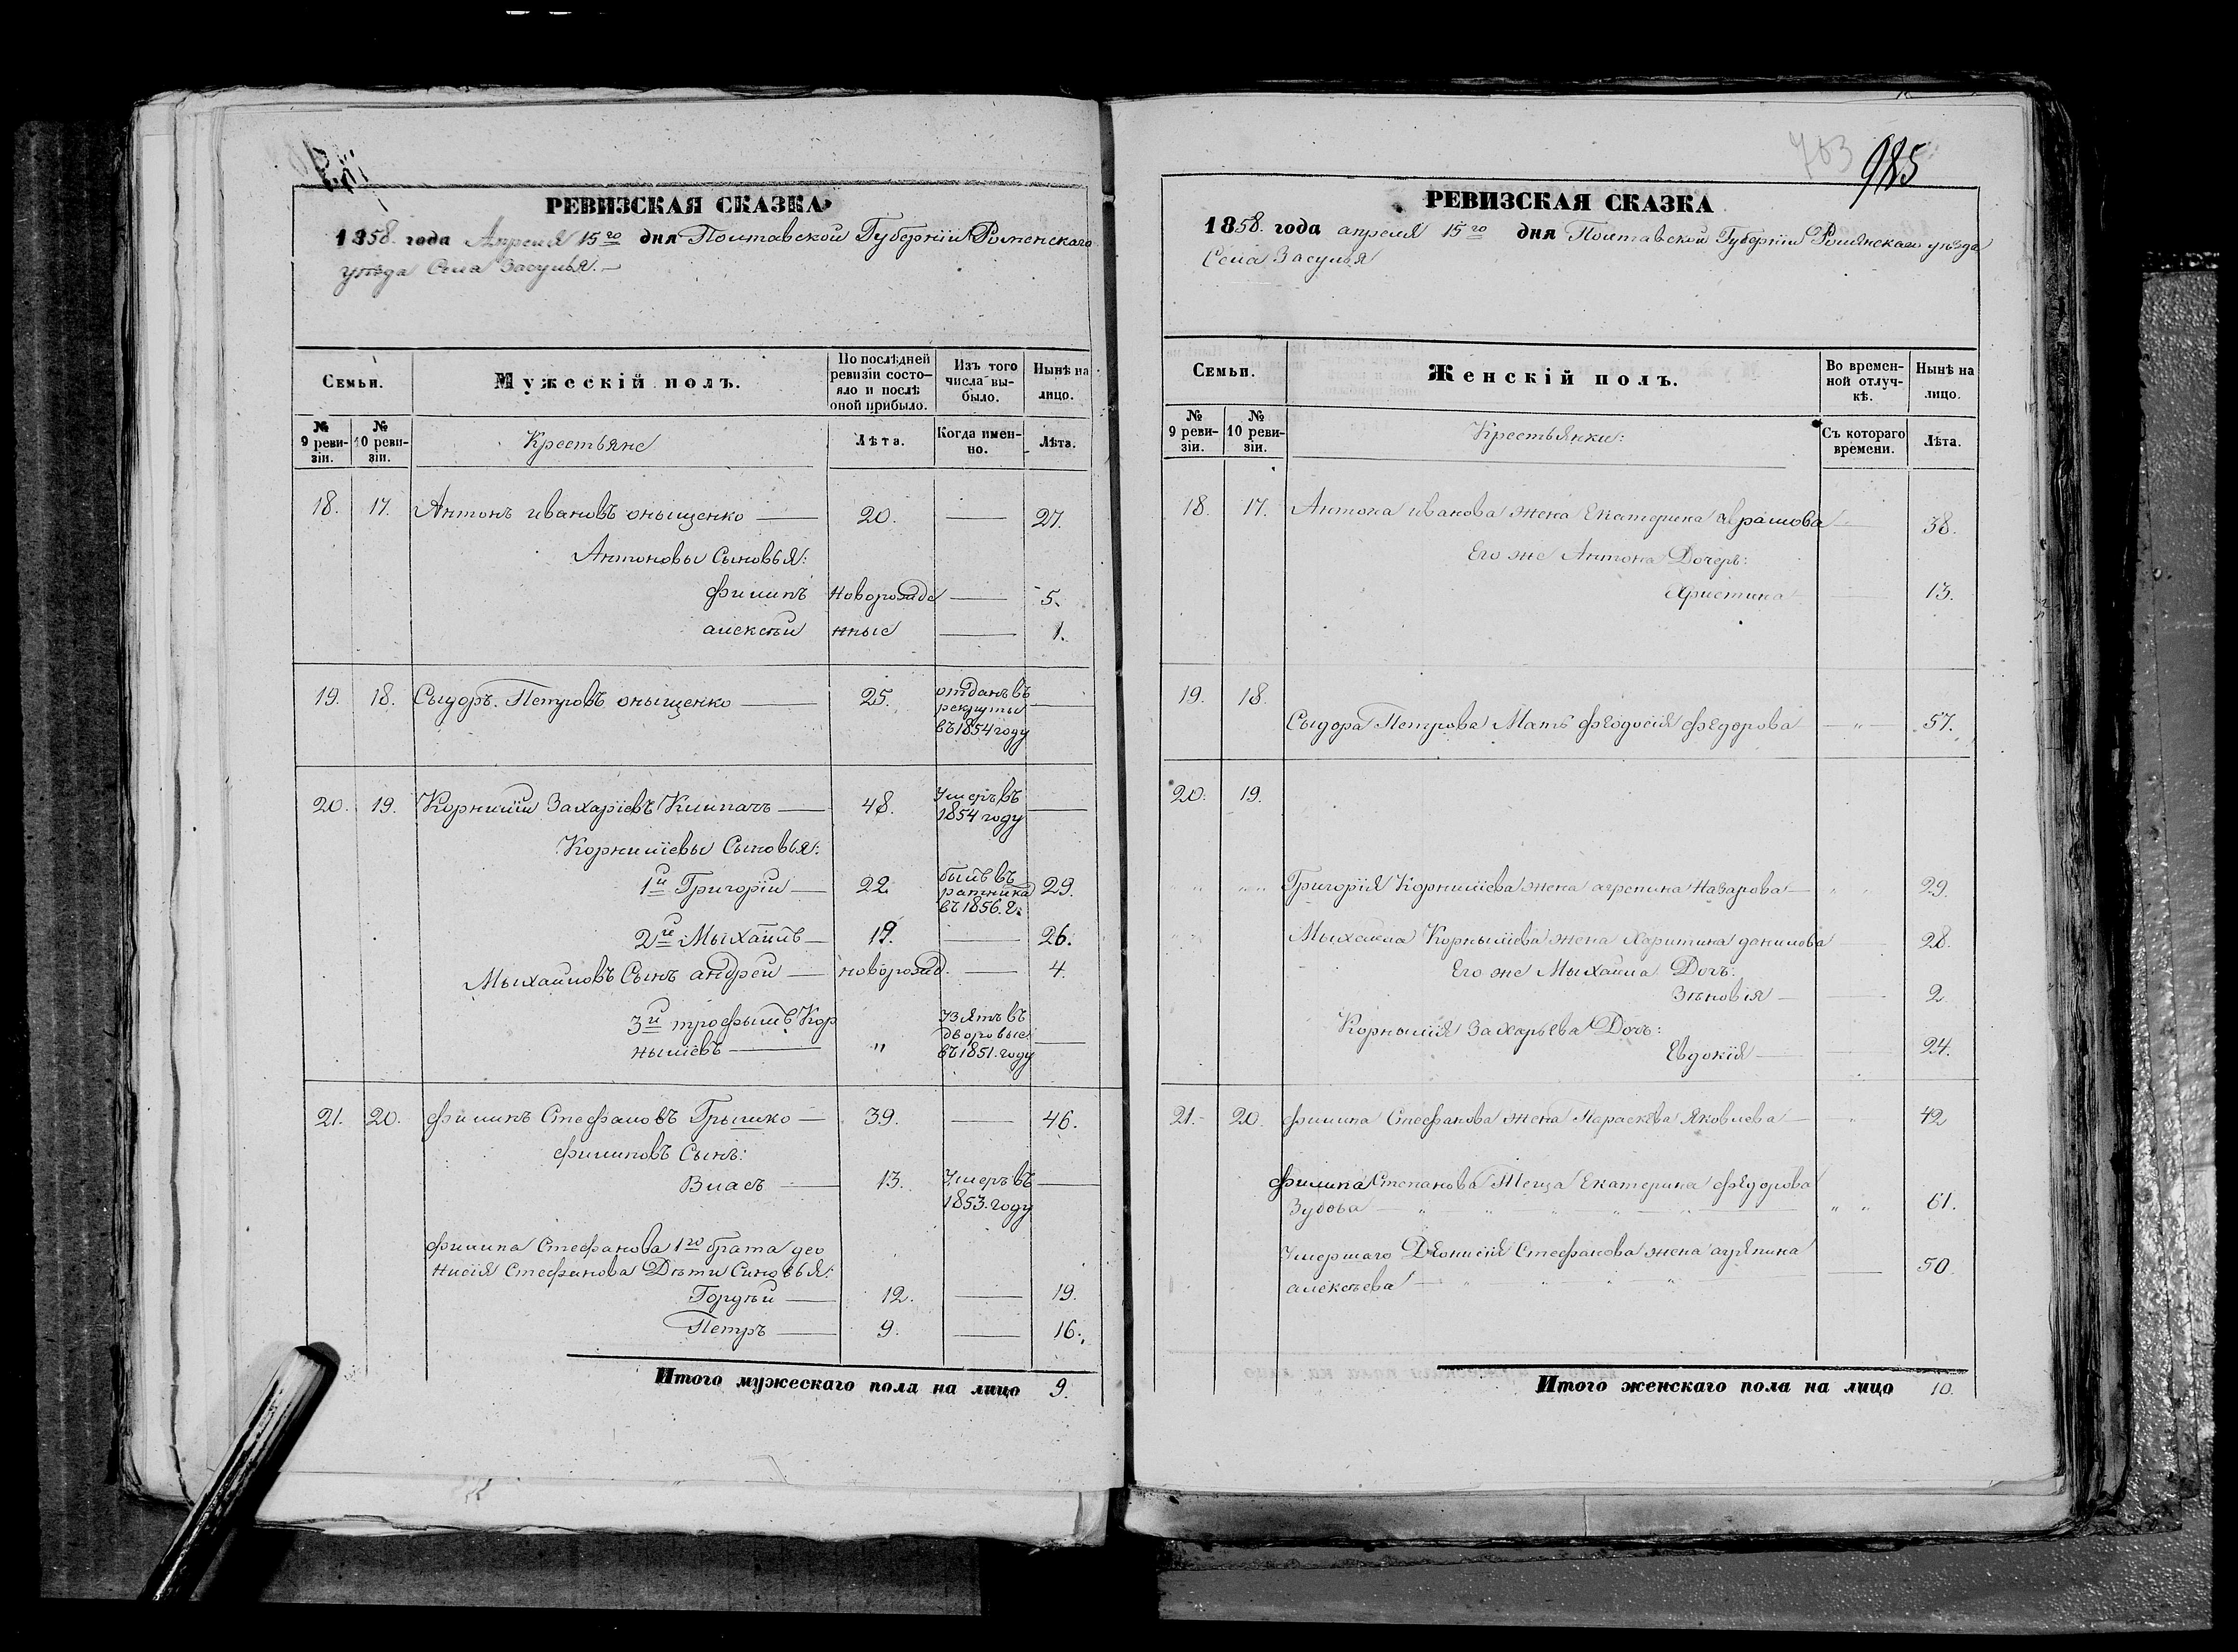 РЕВИЗСКАЯ СКАЗКА
1858. года Апреля 15го дня Полтавской Губернiи Роменскаго
уезда Села Засулья.
Семьи.
Мужескiй полъ.
По послѣдней ревизiи состо-яло и послѣ оной прибыло.
Изъ того числа вы-было.
Нынѣ на лицо.
№ 9 реви-зiи.
№ 10 реви-зiи.
Крестьяне
Лѣта.
Когда имен-но.
Лѣта.
18. 17. Антонъ ивановъ оныщенко 20. 27.
Антоновы Сыновья:
филипъ Новорожде 5.
алексѣй нные 1.
19. 18. Сыдоръ Петровъ оныщенко 25. отданъ въ
рекруты
въ 1854 году
20. 19. Корнилiй Захарiевъ Клипачъ 48. Умеръ въ
1854 году
Корнилiевы Сыновья:
1й Григорiй 22 былъ въ 29.
ратника
въ 1856. г.
2й Мыхаилъ 19. 26.
Мыхаиловъ Сынъ андрей новорожд. 4.
3й трофымъ Кор Взятъ въ
нылiевъ " дворовые
въ 1851. году
21. 20. филипъ Стефановъ Грышко 39. 46.
филиповъ Сынъ:
Власъ 13. Умеръ въ
1853. году
филипа Стефанова 1го брата део
нисiя Стефанова Дѣти Сыновья:
Гордѣй 12. 19.
Петръ 9. 16.
Итого мужескаго пола на лицо 9.
763 985
РЕВИЗСКАЯ СКАЗКА
1858. года апреля 15го дня Полтавской Губернiи Роменскаго уѣзда
Села Засулья
Семьи.
Женскiй полъ.
Во времен-ной отлуч-кѣ.
Нынѣ на лицо.
№ 9 реви-зiи.
№ 10 реви-зiи.
Крестьянки:
Съ котораго времени.
Лѣта.
18. 17. Антона иванова жена Екатерина аврамова 38.
Его же Антона Дочерь:
Христина 13.
19. 18.
Сыдора Петрова Мать феодосiя федорова " 57.
20. 19.
" " " " Григорiя Корнилiева жена агрепина Назарова " " 29.
Мыхаила Корнылiева жена Харитина данилова 28.
Его же Мыхаила Дочь:
Зѣновiя 2.
Корнылiя Захарьева Дочь:
Евдокiя 24.
21. 20. филипа Стефанова жена Параскева Яковлева " 42
филипа Степанова Теща Екатерина федорова
Зубова " " " " " " " 61.
Умершаго Деонисiя Стефанова жена агрѣпина
алексѣева " " " " 50.
Итого женскаго пола на лицо 10.